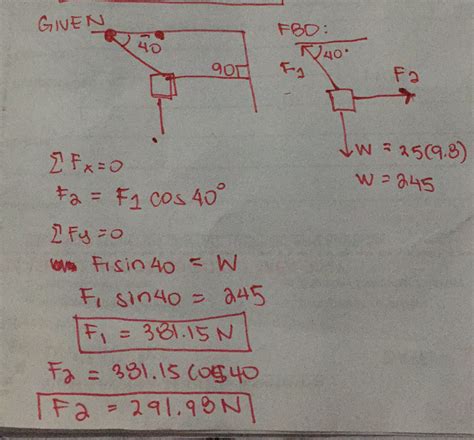 GIVEN
40
90
FBD:
40°
F1
F2
W = 25(9.8)
W = 245
ΣFx=0
F2 = F1 cos 40°
ΣFy=0
F1 sin 40 = W
F1 sin 40 = 245
F1 = 381.15 N
F2 = 381.15 cos 40
F2 = 291.98 N